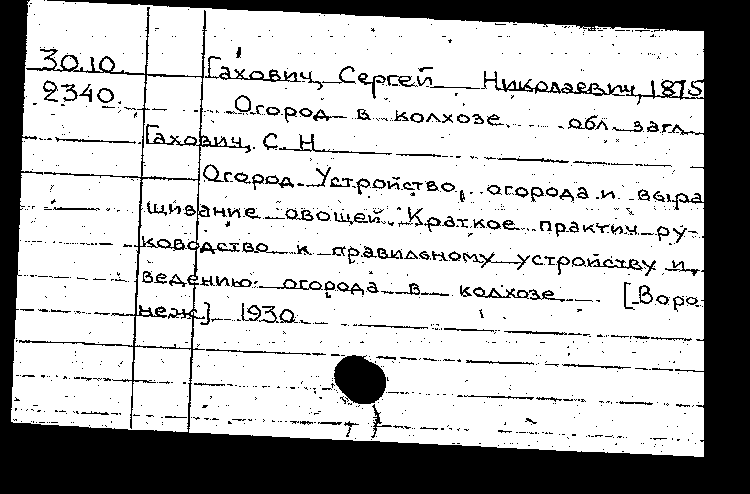 30.10. Гахович, Сергей Николаевич, 1875
2340. Огород в колхозе обл. загл.
Гахович, С. Н.
Огород. Устройство огорода и выра
щивание овощей. Краткое практич. ру-
ководство к правильному устройству и
ведению огорода в колхозе [Воро
неж] 1930.